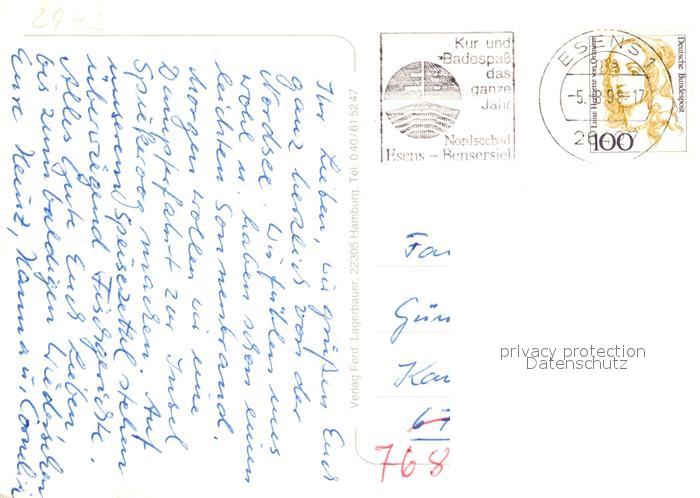 2943
Ihr Lieben, wir grüßen Euch
ganz herzlich von der
Nordsee. Wir fühlen uns
wohl u. haben schon einen
leichten Sonnenbrand.
Morgen wollen wir eine
Dampferfahrt zur Insel
Spiekeroog machen. Auf
unserem Speisezettel stehen
überwiegend Fischgerichte.
Alles Gute Euch Lieben
bis zum baldigen Wiedersehen
Eure Heinz, Hanna u. Cornelia
Verlag Ferd. Lagerbauer, 22305 Hamburg, Tel. 040/615247
Kur und
Badespaß
das
ganze
Jahr
Nordseebad
Esens - Bensersiel
ESENS 1
Deutsche Bundespost
Luise Henriette von Oranien
100
Fa
Gün
Ka
67
768
privacy protection
Datenschutz